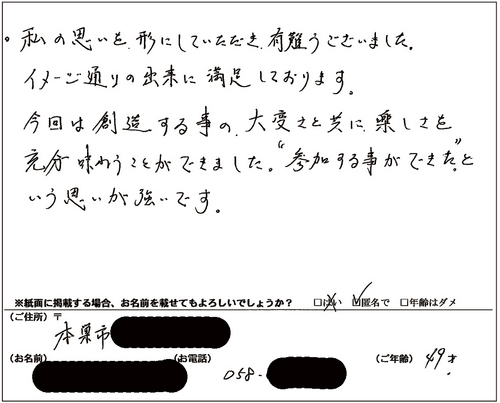 。私の思いを、形にしていただき、有難うございました。
イメージ通りの出来に満足しております。
今回は創造する事の、大変さと共に、楽しさを
充分味わうことができました。“参加する事ができた”と
いう思いが強いです。
※紙面に掲載する場合、お名前を載せてもよろしいでしょうか？ □はい ☑匿名で □年齢はダメ
（ご住所）〒
本巣市
（お名前） （お電話） 058- （ご年齢） 49才.